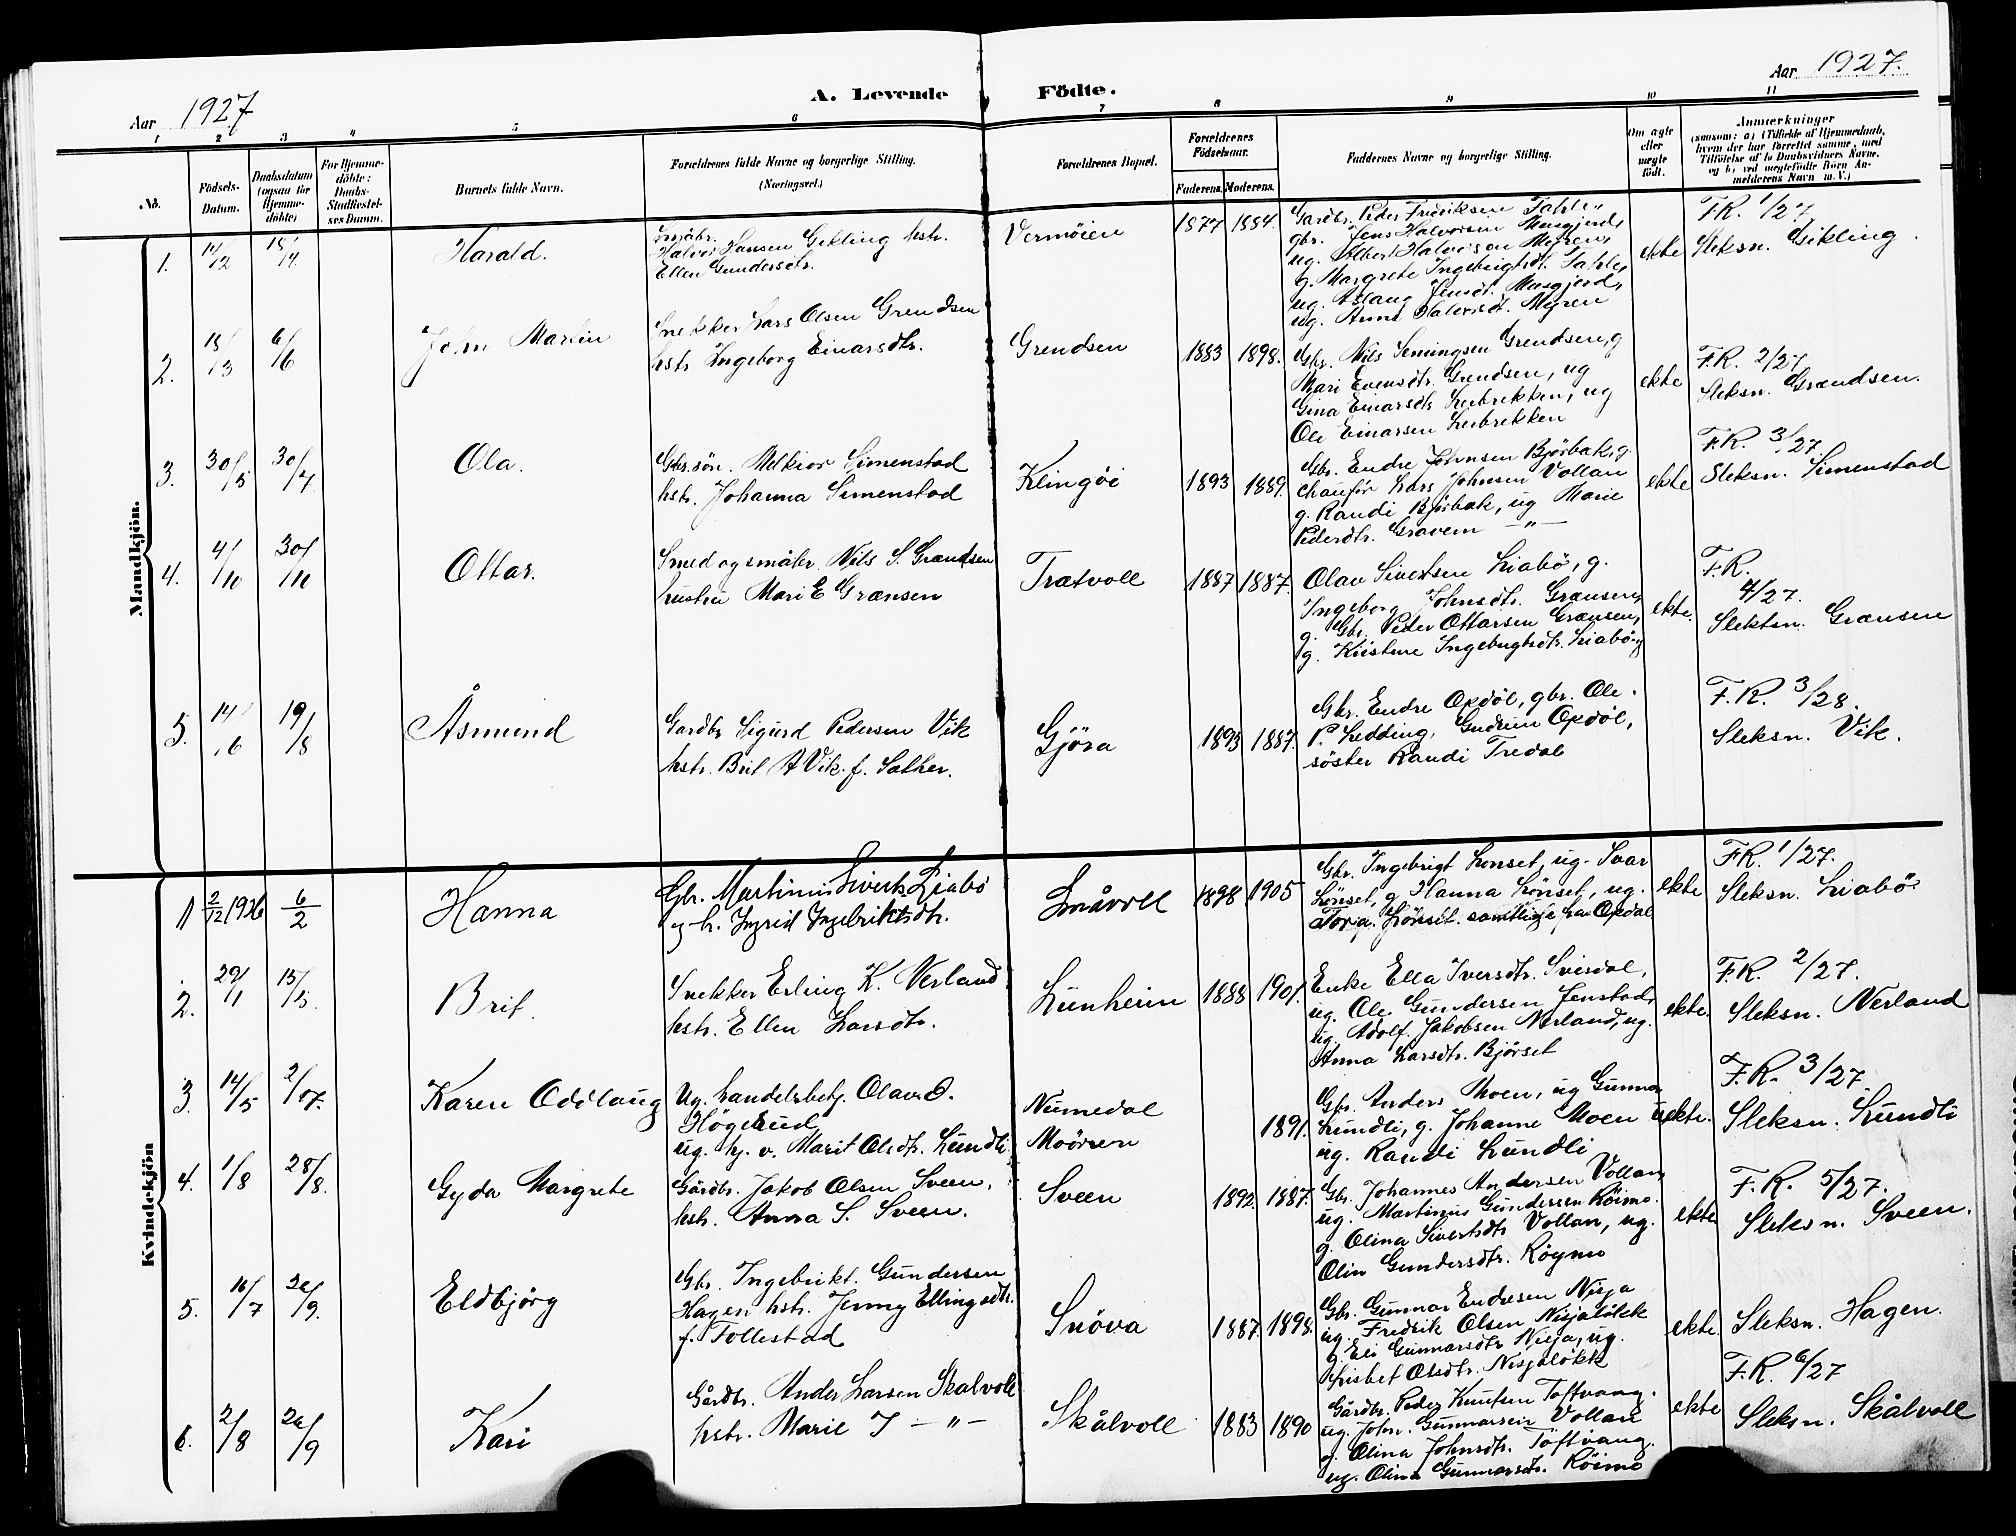 Aar 1927
A. Levende Födte.
Aar 1927.
1 2 3 4 5 6 7 8 9 10 11
No.
Födsels-Datum.
Daabsdatum (ogsaa for Hjemmedöbte)
For Hjemmedöbte: Daabs-Stadfæstelses Datum.
Barnets fulde Navn.
Forældrenes fulde Navne og borgerlige Stilling. (Næringsvei.)
Forældrenes Bopæl.
Forældrenes Födselsaar.
Faderens. Moderens.
Faddernes Navne og borgerlige Stilling.
Om ægte eller uægte födt.
Anmærkninger
(saasom: a) i Tilfælde af Hjemmedaab,
hvem der har forrettet samme, med
Tilföielse af to Daabsvidners Navne,
og b) ved uægtefödte Börn Anmelderens Navn m.V.)
Mandkjön.
1. 14/12 18/4 Harald.
Småbr.
Halvor Hansen Gikling hstr.
Ellen Gundersdtr.
Vermöien 1877 1884.
Gardbr. Peder Fredriksen Fahle,
gbr. Jens Halvorsen Musgjerd,
ug. Albert Halvorsen Myren,
g. Margrete Ingebrigtsdt. Fahle,
ug. Aslaug Jensdt. Musgjerd,
ug. Anna Halvorsdt. Myren
ekte
F.R. 1/27
Sleksn. Gikling.
2. 13/3 6/6 John Martin
Snekker Lars Olsen Grendsen
hstr Ingeborg Einarsdtr.
Grendsen 1883 1898.
Gbr. Nils Semingsen Grendsen, g
Mari Evensdtr. Grendsen, ug
Gina Einarsdtr Leibrekken, ug
Ole Einarsen Leibrekken
ekte
F.R. 2/27
Sleksn. Grændsen.
3. 30/5 30/7 Ola.
Gbr.sön. Melkior Simenstad
hstr. Johanna Simenstad
Klingöi 1893 1889.
Gbr. Endre Johnsen Björbak, g.
chauför Lars Johnsen Vollan
g. Randi Björbak, ug Marie
Pedersdtr. Gravem —"—
ekte
F.R. 3/27.
Sleksn. Simenstad
4. 4/10 30/10 Ottar.
Smed og småbr. Nils S. Grændsen
hustru Mari E Grænsen
Trætvoll 1887 1887.
Olav Sivertsen Liabö, g.
Ingeborg Johnsdtr. Grænsen,
g. Gbr. Peder Ottarsen Grænsen,
g. Kristine Ingebrigtsdtr. Liabö g
ekte.
F.R.
4/27.
Slektsn. Grænsen
5. 14/6 19/8 Åsmund
Gardbr Sigurd Pedersen Vik
hstr. Brit A Vik. f. Sæther.
Gjöra 1893 1887.
Gbr. Endre Opdöl, gbr. Ole
P. Hedding, Gudrun Opdöl,
söster Randi Tredal
F.R. 3/28.
Sleksn. Vik.
Kvindekjön
1 2/12 1926 6/2 Hanna
Gbr. Martinus Siverts Liabö
og h. Ingrid Ingebriktsdtr.
Småvoll 1898 1905
Gbr. Ingebrigt Lönset, ug. Ivar
Lönset, g Hanna Lönset, ug.
Torja. Lönset. samtlige fra Opdal
ekte
F.R. 1/27.
Sleksn. Liabö
2. 29/1 15/5 Brit.
Snekker Erling K. Nerland
hstr. Ellen Larsdtr.
Lunheim 1888 1901.
Enke Ella Iversdtr. Svisdal,
ug. Ole Gundersen Jenstad,
ug. Adolf. Jakobsen Nerland, ug.
Anna Larsdtr. Björset
ekte.
F.R. 2/27.
Sleksn. Nerland
3. 14/5 2/07. Karen Oddlaug
Ug. handelsbetj. Olav O.
Högerud
ug. hj. v. Marit Olsdtr. Lundli
Numedal
Moörsen
1891.
Gbr. Anders Moen, ug Gunnar
Lundli, g. Johanne Moen
ug. Randi Lundli
uekte.
F.R. 3/27.
Sleksn. Lundli
4. 1/8 28/8. Gyda Margrete
Gårdbr. Jakob Olsen Sveen,
hstr. Anna S. Sveen.
Sveen 1892. 1887.
Gbr. Johannes Andersen Vollan,
ug. Martinus Gundersen Röimo.
g. Olina Sivertsdtr Vollan, ug.
Olin Gundersdtr. Röymo
ekte
F.R. 5/27.
Sleksn. Sveen.
5. 16/7 2a/9. Eldbjörg
Gbr Ingebrikt. Gundersen
Hagen hstr. Jenny Ellingsdtr.
f. Tollestad
Snöva 1887. 1898.
Gbr. Gunnar Endresen Nisja
ug. Fredrik Olsen Nisjalökk
g. Eli Gunnarsdtr Nisja, ug.
Lisbet Olsdtr. Nisjalökk
ekte.
Sleksn. Hagen.
6. 2/8 2a/9 Kari
Gårdbr. Ander Larsen Skålvoll
hstr. Marie J —"—
Skålvoll 1883 1890
Gårdbr. Peder Knutsen Toftvang.
ug. John. Gunnarsen Vollan
g. Olina Johnsdtr. Toftvang.
ug. Olina Gunnarsdtr. Röimo
ekte
F.R. 6/27
Sleksn. Skålvoll